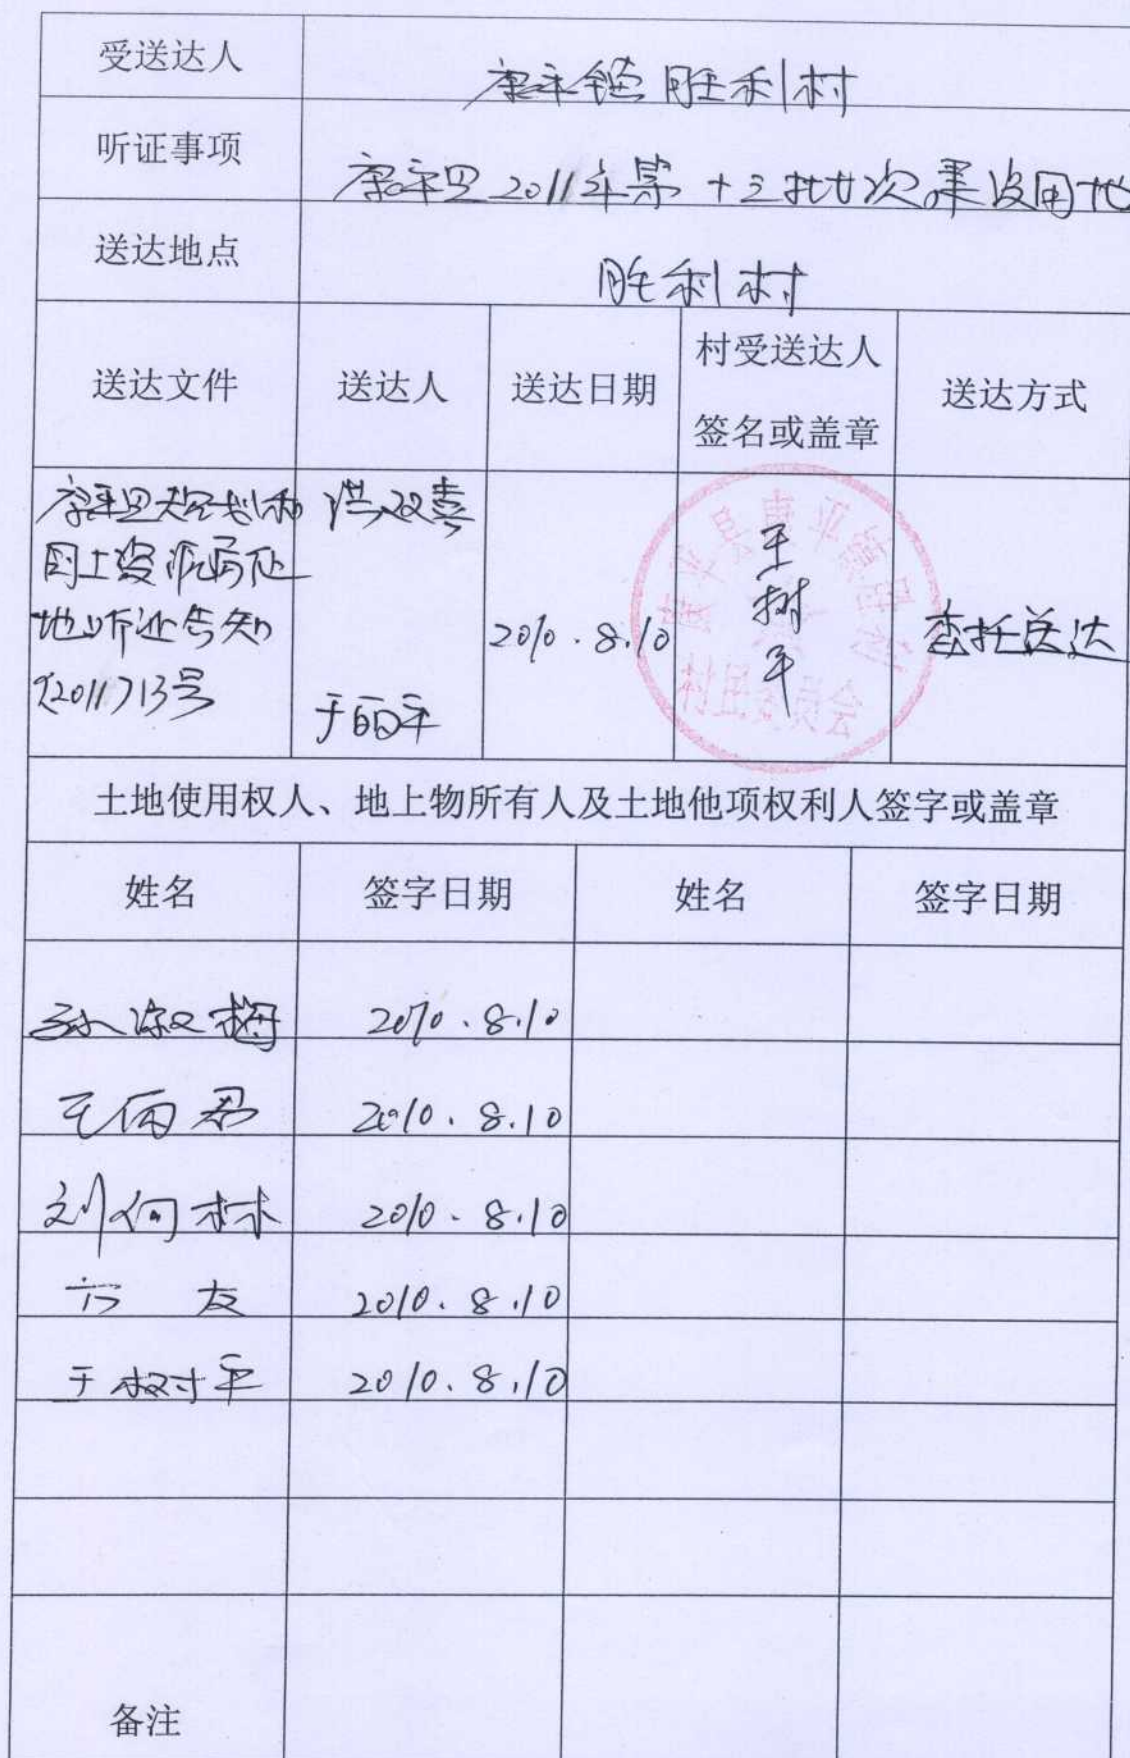 受送达人
康平镇胜利村
听证事项
康平县2011年第十三批次建设用地
送达地点
胜利村
送达文件 送达人 送达日期 村受送达人签名或盖章 送达方式
康平县规划和
国土资源局征
地听证告知
(2011)13号
洪双喜
2010.8.10
王树平
委托送达
土地使用权人、地上物所有人及土地他项权利人签字或盖章
姓名 签字日期 姓名 签字日期
孙淑梅 2010.8.10
2010.8.10
刘向林 2010.8.10
友 2010.8.10
于树平 2010.8.10
备注